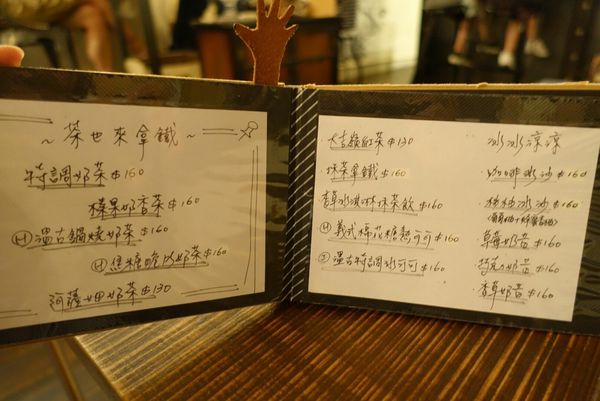 ~ 茶也來拿鐵 ~
特調奶茶 $160
榛果奶香茶 $160
Ⓗ 溫古鍋燒奶茶 $160
Ⓗ 焦糖 奶茶 $160
阿薩姆奶茶 $130
大吉嶺紅茶 $130
抹茶拿鐵 $160
香草冰淇淋抹茶飲 $160
Ⓗ 義式棉花糖熱可可 $160
溫古特調冰可可 $160
冰冰涼涼
咖啡冰沙 $160
柚柚冰沙 $160
草莓奶昔 $160
巧克力奶昔 $160
香草奶昔 $160